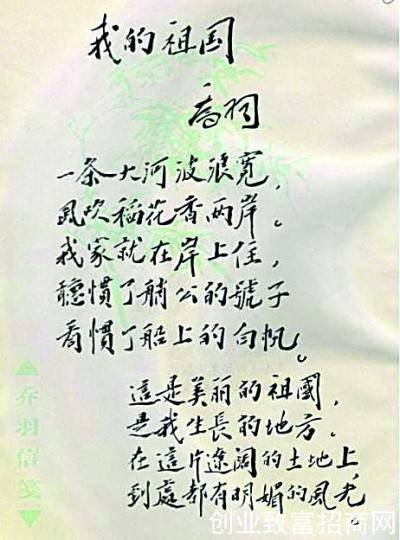 我的祖国
喬羽
一条大河波浪寬,
風吹稻花香两岸。
我家就在岸上住,
聽慣了艄公的號子
看慣了船上的白帆。
這是美丽的祖國,
是我生長的地方.
在這片遼阔的土地上,
到處都有明媚的風光
乔羽信笺
创业致富招商网